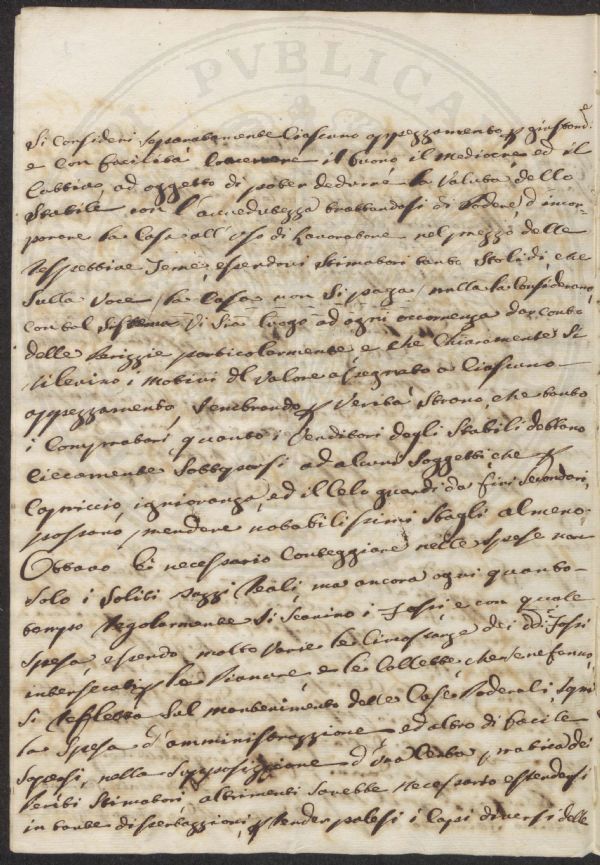 PVBLICA
Si Consideri separatamente Ciascuno appezzamento, giust
e con facilità il buono, il mediocre ed il
Cattivo, ad oggetto di poter dedurne la Valuta dello
Stabile con l'accedutezza trattandosi di Podere, d'incor-
porare la Casa all'uso di Lavoratore nel prezzo delle
rispettive Terre, essendovi Stimatori tanto Stolidi, che
Sulla Voce, la Casa non Si paga, nulla la Considerano,
con tal Sistema Vi Sia luogo ad ogni occorenza dar conto
delle particolarmente e che Chiaramente Si
rilevino i motivi del Valore assegnato a Ciascuno
appezzamento, Sembrando Verità Strano, che tanto
i Compratori quanto i Venditori degli Stabili debbano
Ciecamente Sottoporsi ad alcuni Soggetti, che
Capriccio, ignioranza, ed il Celo guardi da fini Secondari,
possano, prendere notabilissimi Sbagli almeno
Ottavo È necessario Conteggiare nelle Spese non
Solo i Soliti Dazzi Reali, ma ancora ogni quanto
tempo regolarmente Si Scavino i Fossi e con quale
Spesa essendo molto Varie le Circostanze dei dd. Fossi
intersecati le Pianure e le Collette, che Se ne fanno,
Si rifletta Sul mantenimento delle Case Poderali,
la Spesa d'amministrazzione ed altro di facile
nella Supposizzione d'una Certa pratica dei
Periti Stimatori, altrimenti Sarebbe necessario estendersi
in tante dissertazzioni, render palesi i Casi diversi delle